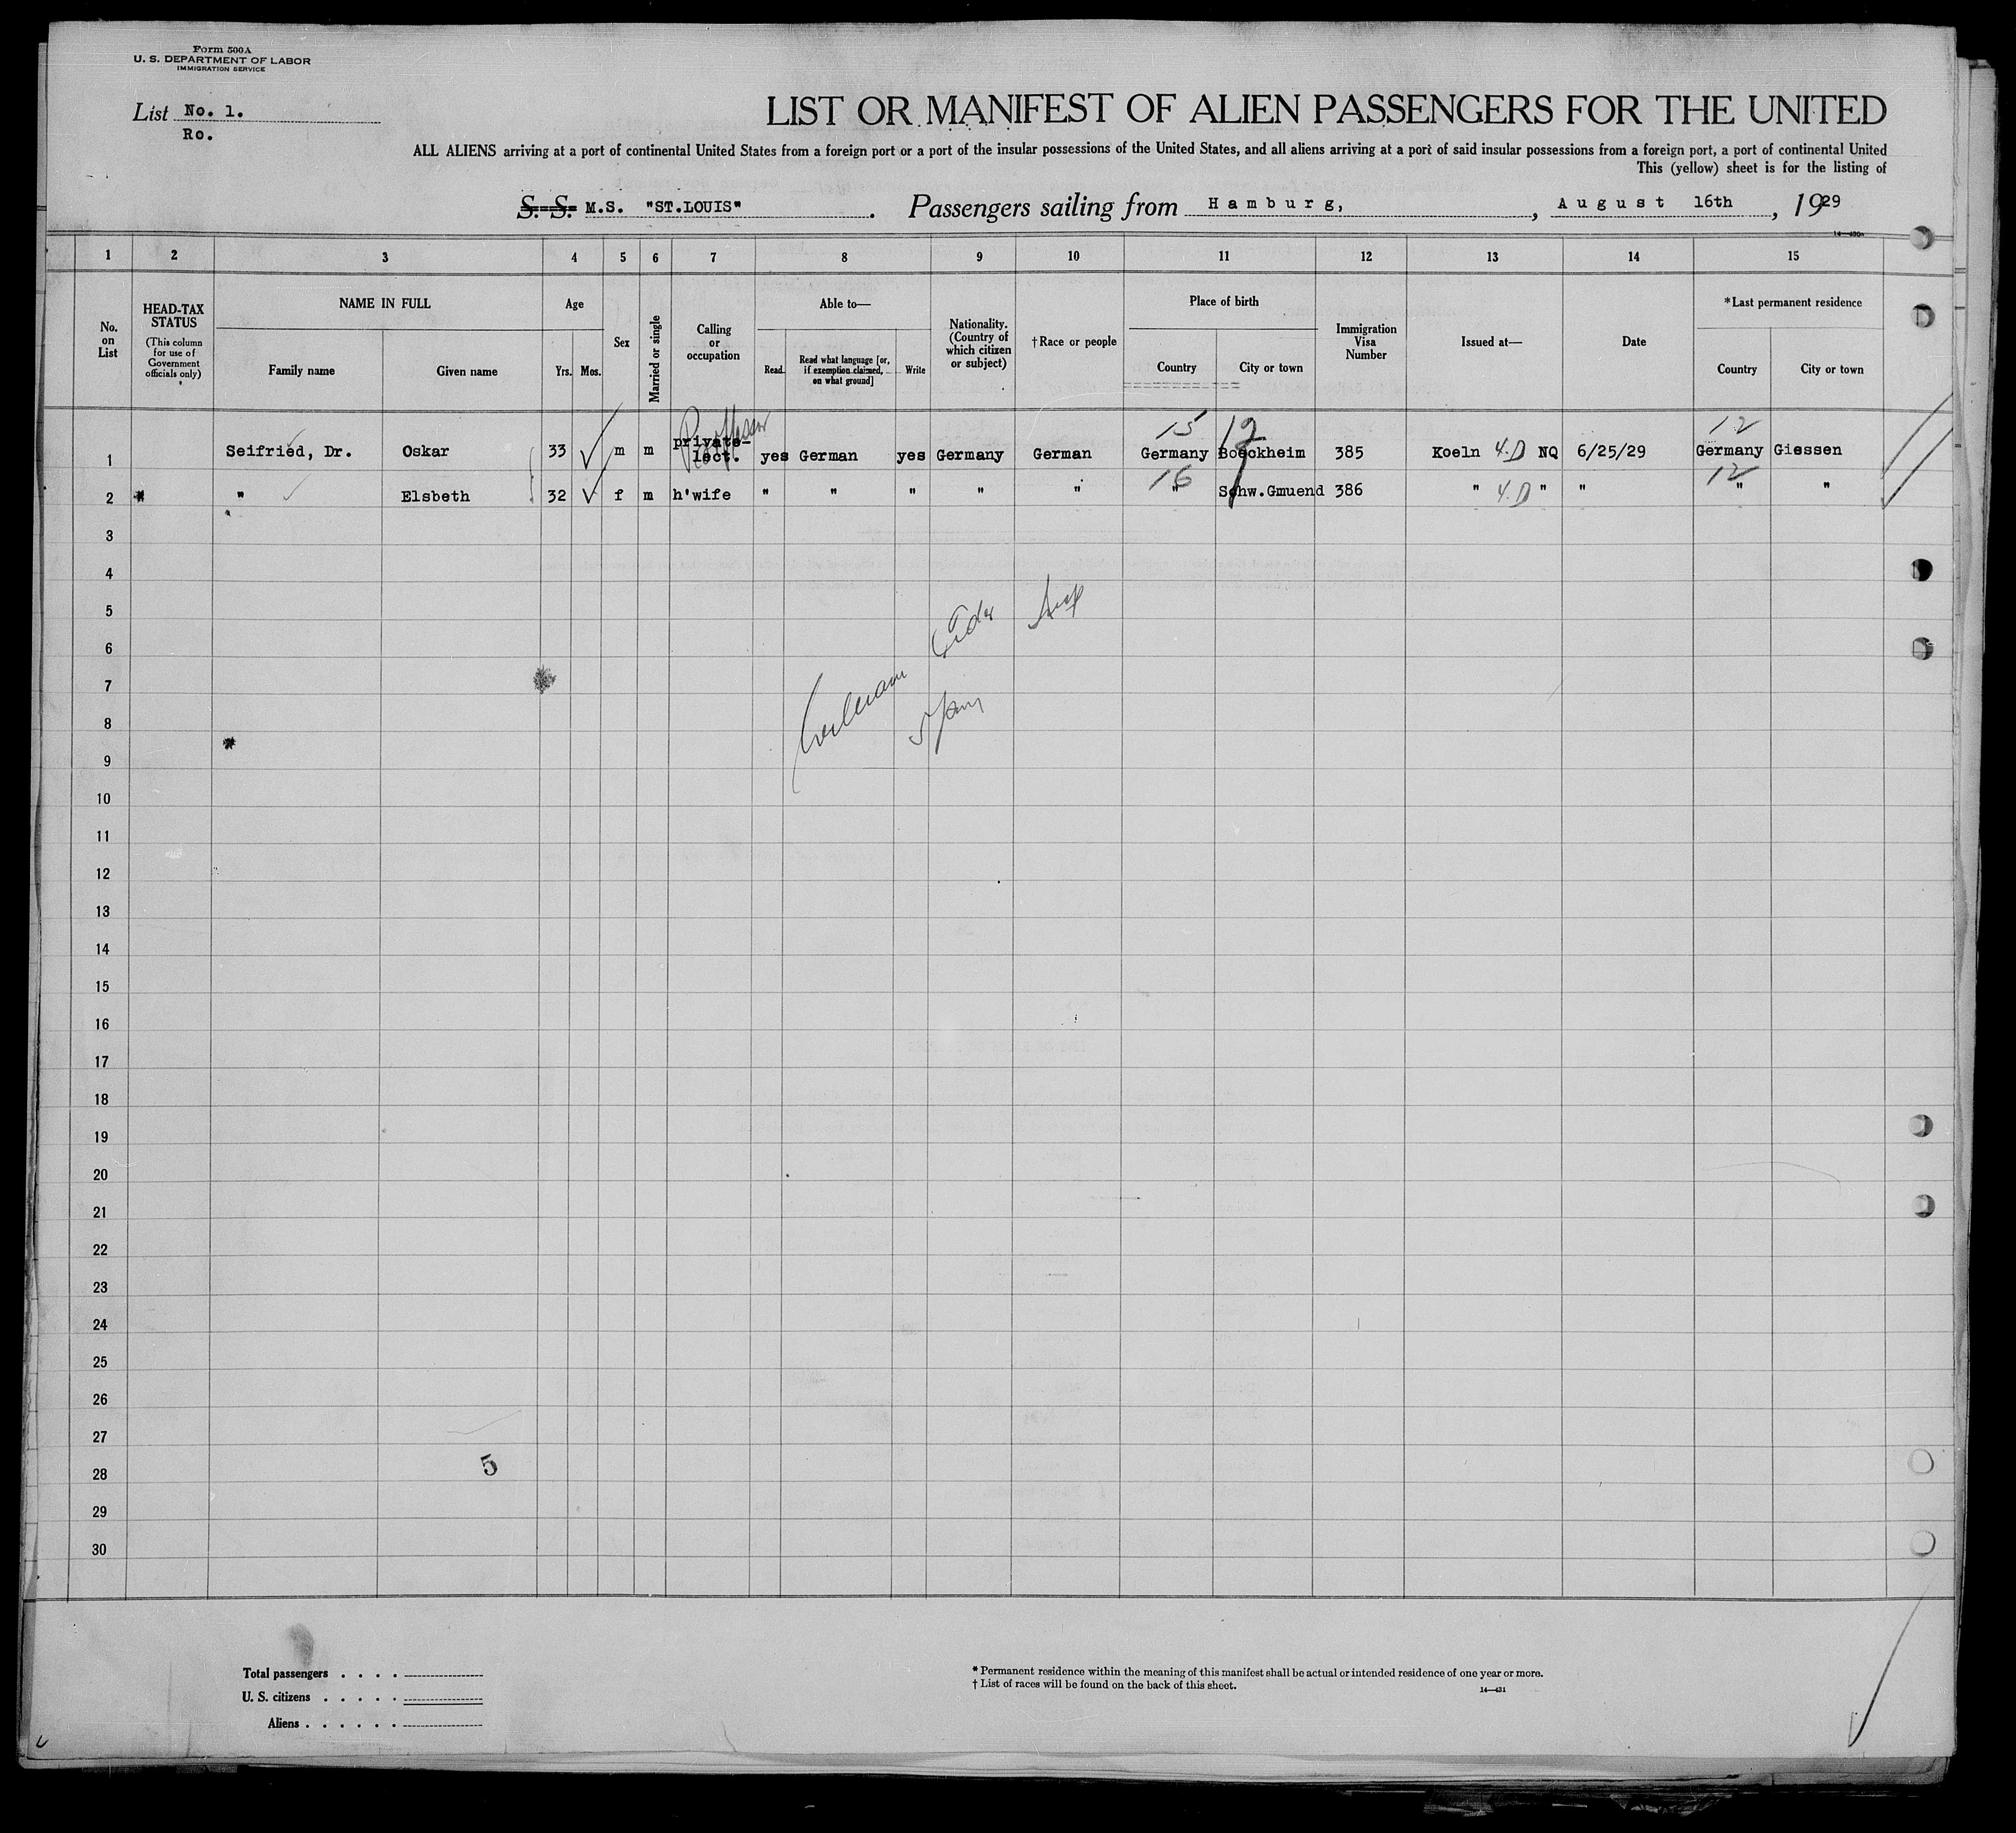 Form 500A
U. S. DEPARTMENT OF LABOR
IMMIGRATION SERVICE
List No. 1.
Ro.
LIST OR MANIFEST OF ALIEN PASSENGERS FOR THE UNITED
ALL ALIENS arriving at a port of continental United States from a foreign port or a port of the insular possessions of the United States, and all aliens arriving at a port of said insular possessions from a foreign port, a port of continental United
This (yellow) sheet is for the listing of
S. S. M.S. "ST.LOUIS" . Passengers sailing from Hamburg, , August 16th , 1929
14—430a
1 2 3 4 5 6 7 8 9 10 11 12 13 14 15
No. on List
HEAD-TAX STATUS
(This column for use of Government officials only)
NAME IN FULL
Family name Given name
Age
Yrs. Mos.
Sex
Married or single
Calling or occupation
Able to—
Read Read what language [or, if exemption claimed, on what ground] Write
Nationality. (Country of which citizen or subject)
†Race or people
Place of birth
Country City or town
Immigration Visa Number
Issued at—
Date
*Last permanent residence
Country City or town
Professor 15 12 12
1 Seifried, Dr. Oskar 33 m m private-lect. yes German yes Germany German Germany Boeckheim 385 Koeln 4.D NQ 6/25/29 Germany Giessen
16 12
2 " Elsbeth 32 f m h'wife " " " " " " Schw.Gmuend 386 " 4.D " " " "
3
4
5
6
7
8
9
10
11
12
13
14
15
16
17
18
19
20
21
22
23
24
25
26
27
28
29
30
5
Total passengers . . . .
U. S. citizens . . . . .
Aliens . . . . . .
* Permanent residence within the meaning of this manifest shall be actual or intended residence of one year or more.
† List of races will be found on the back of this sheet.
14—431